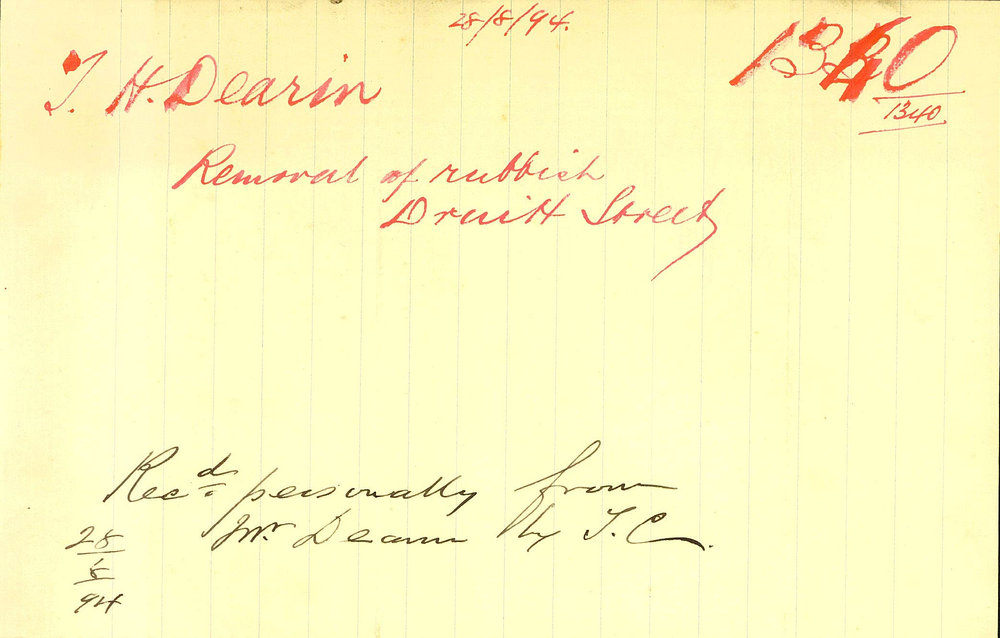 28/8/94.
1340
1340
T. H. Dearin
Removal of rubbish
Druitt Street
Rec.d personally from
Mr. Dearin by T.C.
28
8
94